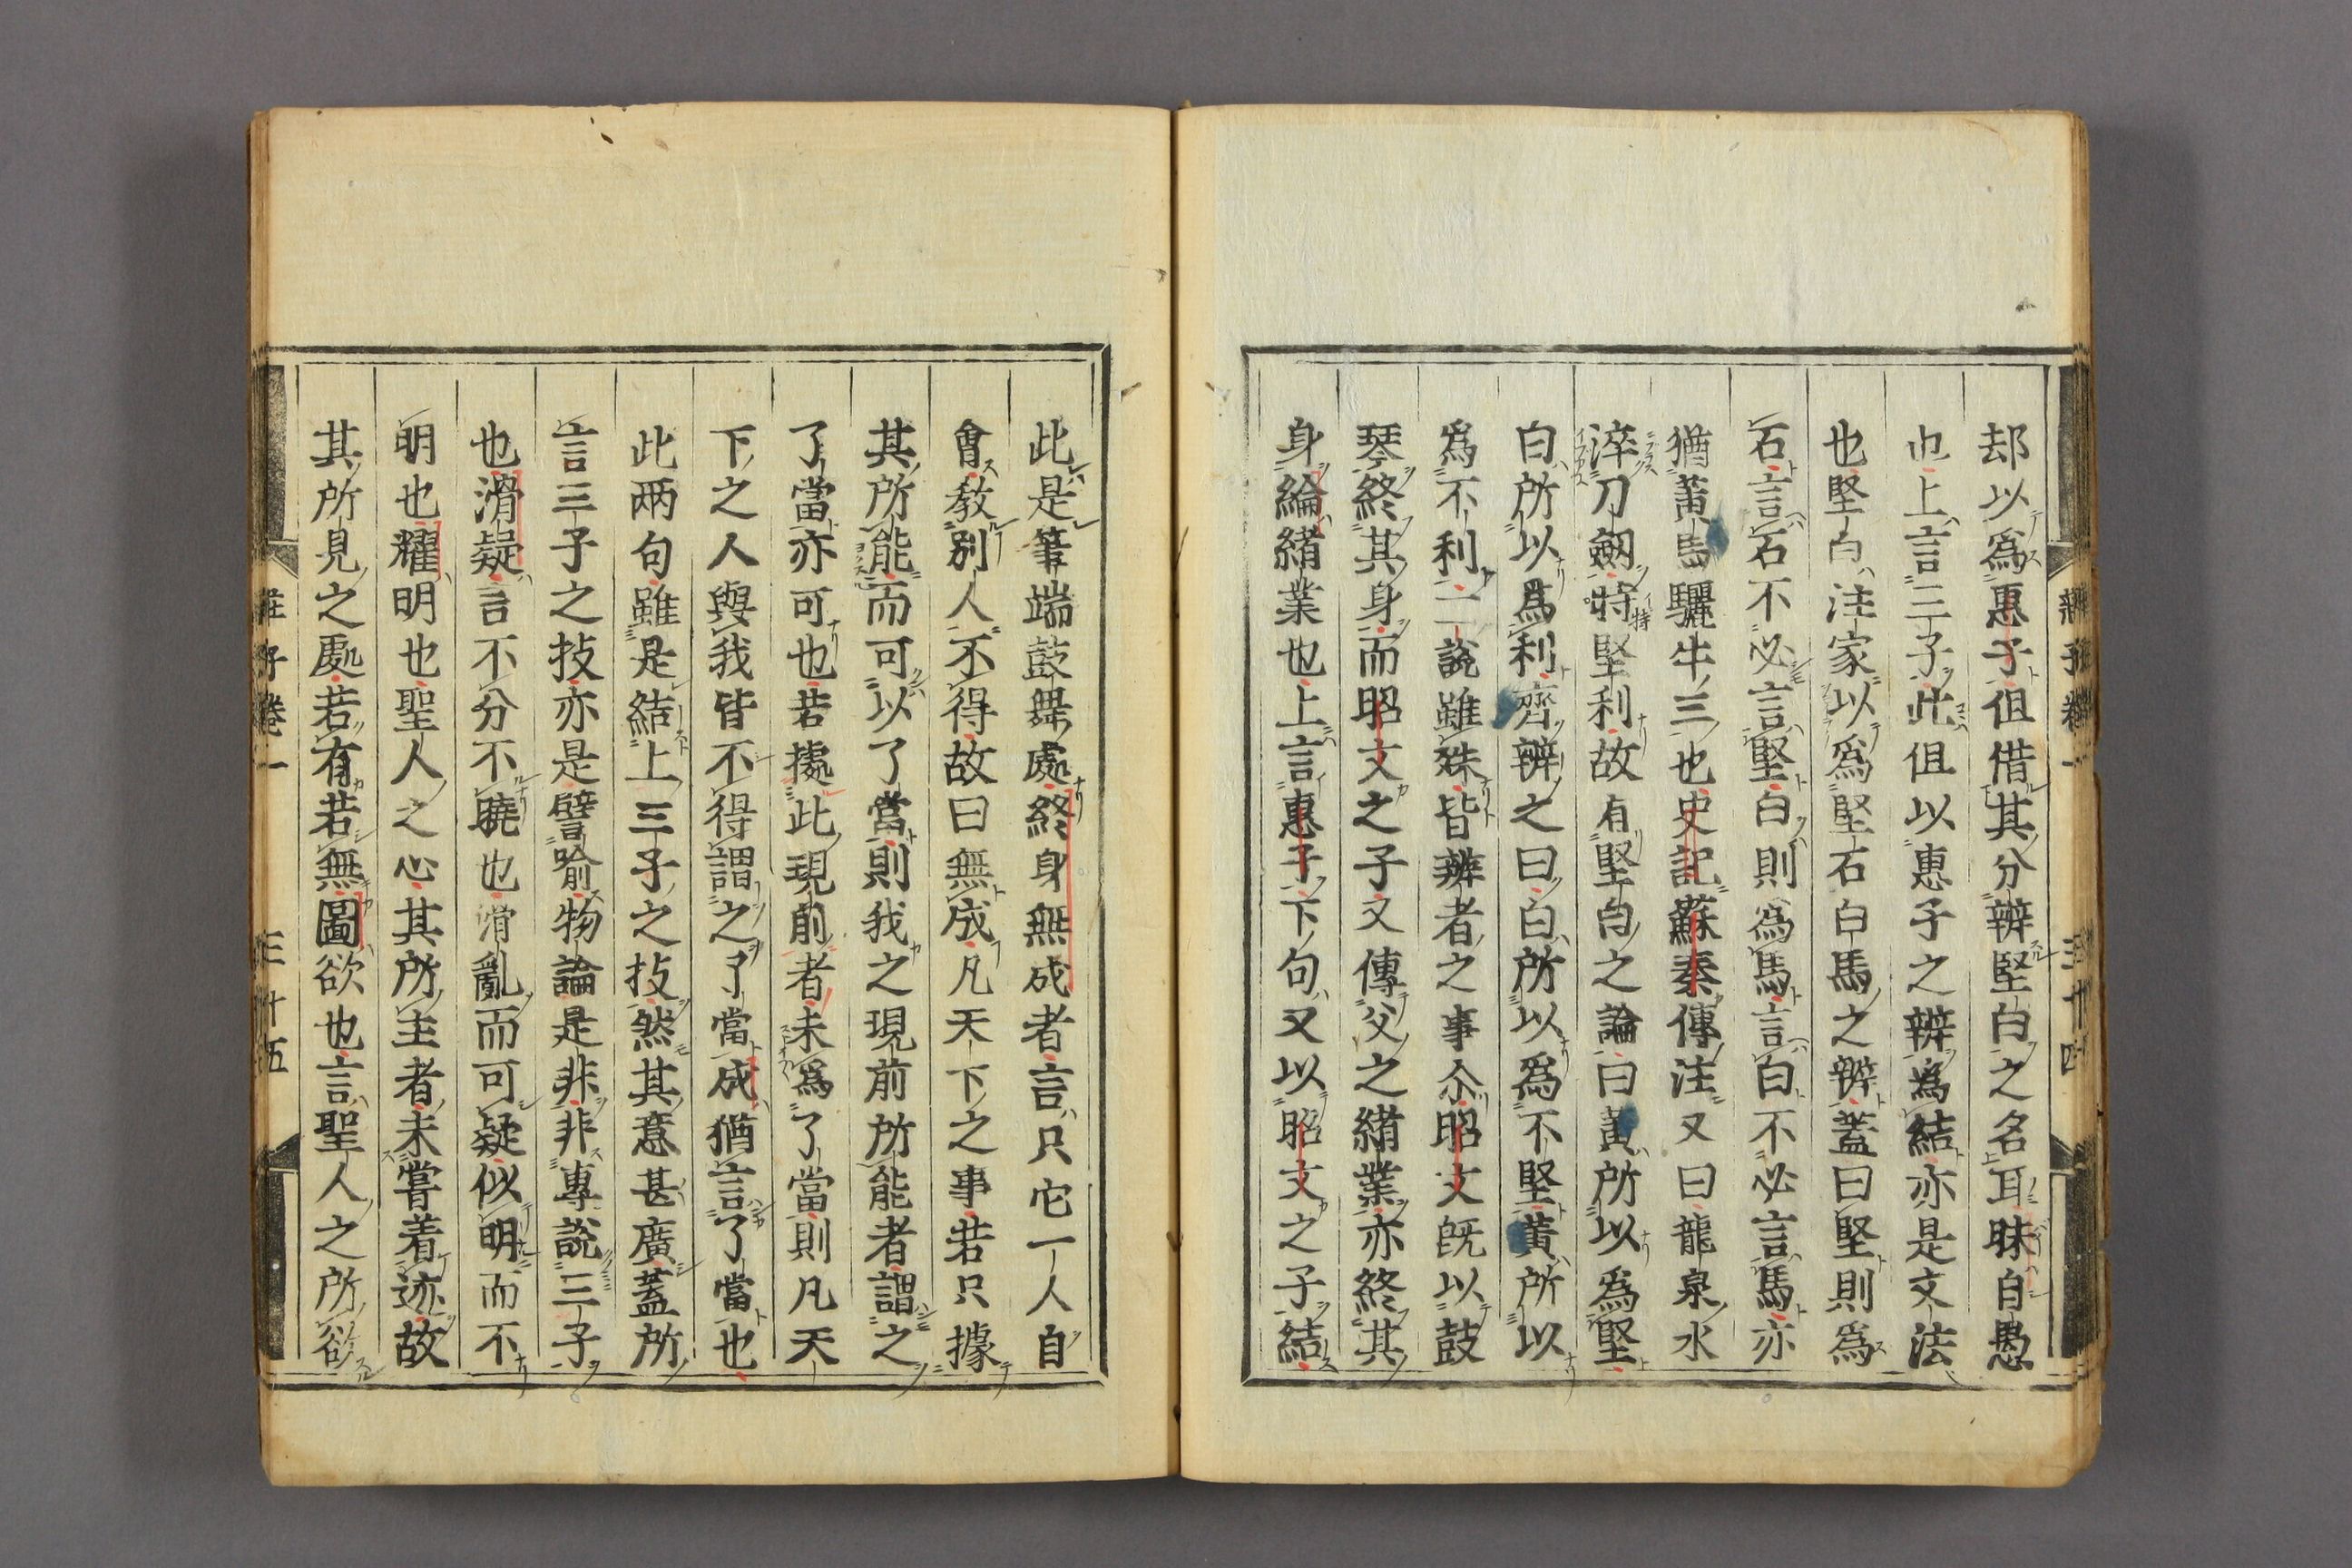 却以爲惠子但借其分辨堅白之名耳昧自愚
也上言三子此但以惠子之辨爲結亦是文法
也堅白注家以爲堅石白馬之辨蓋曰堅則爲
石言石不必言堅白則爲馬言白不必言馬亦
猶黃馬驪牛三也史記蘇秦傳注又曰龍泉水
淬刀劔特堅利故有堅白之論曰黃所以爲堅
白所以爲利齊辨之曰白所以爲不堅黃所以
爲不利二說雖殊皆辨者之事尒昭文旣以鼓
琴終其身而昭文之子又傳父之緖業亦終其
身綸緖業也上言惠子下句又以昭文之子結
莊子卷一 三十四
此是筆端鼓舞處終身無成者言只它一人自
會敎別人不得故曰無成凡天下之事若只據
其所能而可以了當則我之現前所能者謂之
了當亦可也若據此現前者未爲了當則凡天
下之人與我皆不得謂之了當成猶言了當也
此兩句雖是結上三子之技然其意甚廣蓋所
言三子之技亦是譬喻物論是非非專說三子
也滑疑言不分不曉也滑亂而可疑似明而不
明也耀明也聖人之心其所主者未嘗着迹故
其所見之處若有若無圖欲也言聖人之所欲
莊子卷一 三十五